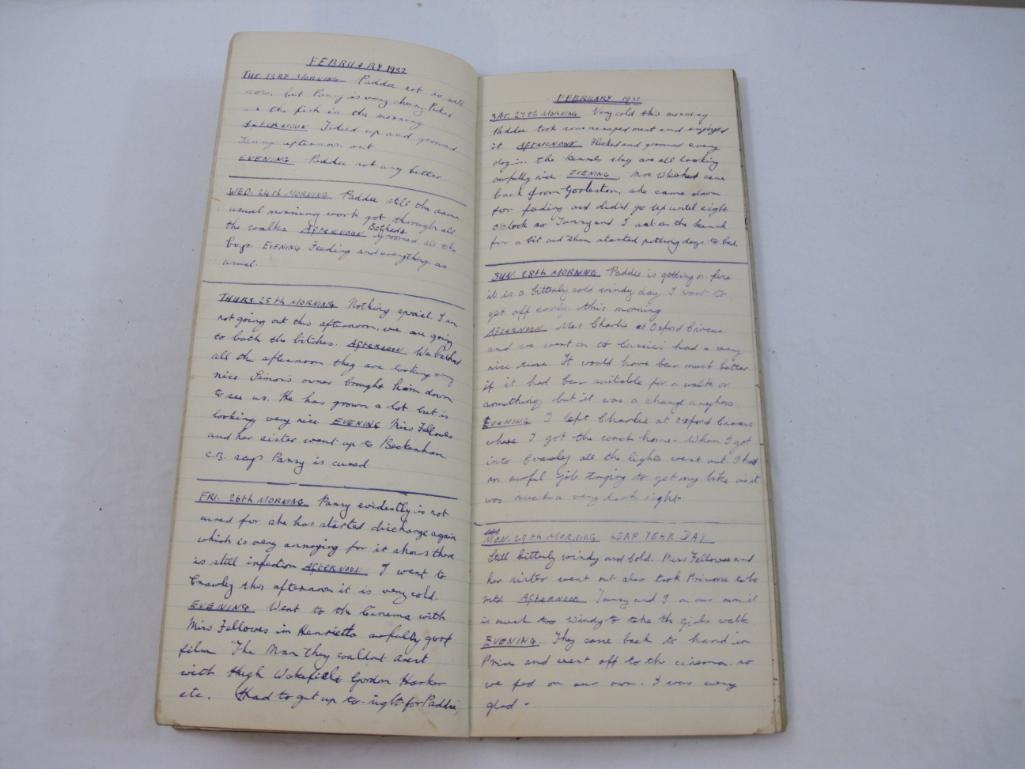 FEBRUARY 1937
TUE 23RD MORNING Paddie not so well
now, but Pansy is very cheery Picked
the fish in the morning
AFTERNOON Tidied up and groomed
afternoon out
EVENING Paddie not any better
WED. 24TH MORNING Paddie still the same
usual morning work got through all
the walks AFTERNOON Bathed groomed all the
boys EVENING Feeding and everything as
usual.
THURS 25TH MORNING Nothing special I am
not going out this afternoon, we are going
to bath the bitches. AFTERNOON We bathed
all the afternoon they are looking very
nice Simon's owner brought him down
to see us. He has grown a lot but is
looking very nice EVENING Miss Fellowes
and her sister went up to Beckenham
C.B. says Pansy is cured
FRI. 26TH MORNING Pansy evidently is not
cured for she has started discharge again
which is very annoying for it shows there
is still infection AFTERNOON I went to
Crawley this afternoon it is very cold.
EVENING Went to the Cinema with
Miss Fellowes in Henrietta awfully good
film The Man they couldnt arrest
with Hugh Wakefield Gordon Harker
etc. Had to get up to-night for Paddie
FEBRUARY 193
SAT. 27TH MORNING Very cold this morning
Paddie took some nourishment and enjoyed
it AFTERNOON and groomed every
dog in the kennels they are all looking
awfully nice EVENING Mrs came
back from Gorleston, she came down
for feeding and didn't go up until eight
o'clock so and I sat on the bench
for a bit and then started putting dogs to bed.
SUN. 28TH MORNING Paddie is getting on fine
it is a bitterly cold windy day I want to
get off early this morning
AFTERNOON Met Charlie at Oxford Circus
and we went on to had a very
nice time. It would have been much better
if it had been suitable for a walk or
something but it was a change anyhow.
EVENING I left Charlie at Oxford Circus
where I got the coach home. When I got
into Crawley all the lights went out I had
an awful job trying to get my bike as it
was such a very dark night.
MON. 29TH MORNING LEAP YEAR DAY
Still bitterly windy and cold. Miss Fellowes and
her sister went out also took
AFTERNOON and I on our own it
is much too windy to take the girls walk
EVENING They came back to hand in
and went off to the cinema so
we fed on our own. I was very
glad -